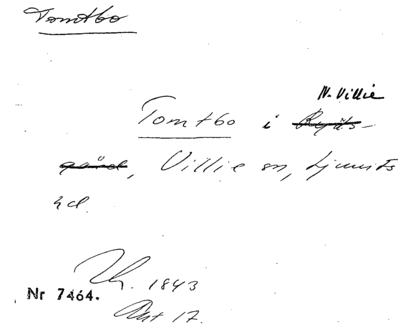 Tomtbo
N. Villie
Tomtbo i Ryds-
gård, Villie sn, Ljunits
hd.
1843
Nr 7464.
Akt 17.